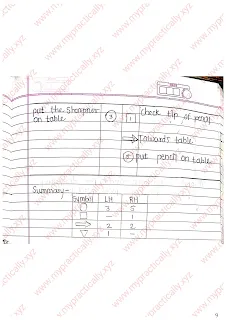 put the sharpner 3 1 check tip of pencil
on table
Towards table
2 put pencil on table
Summary-
Symbol LH RH
3 5
- 1
2 2
1 -
www.mypractically.xyz
9